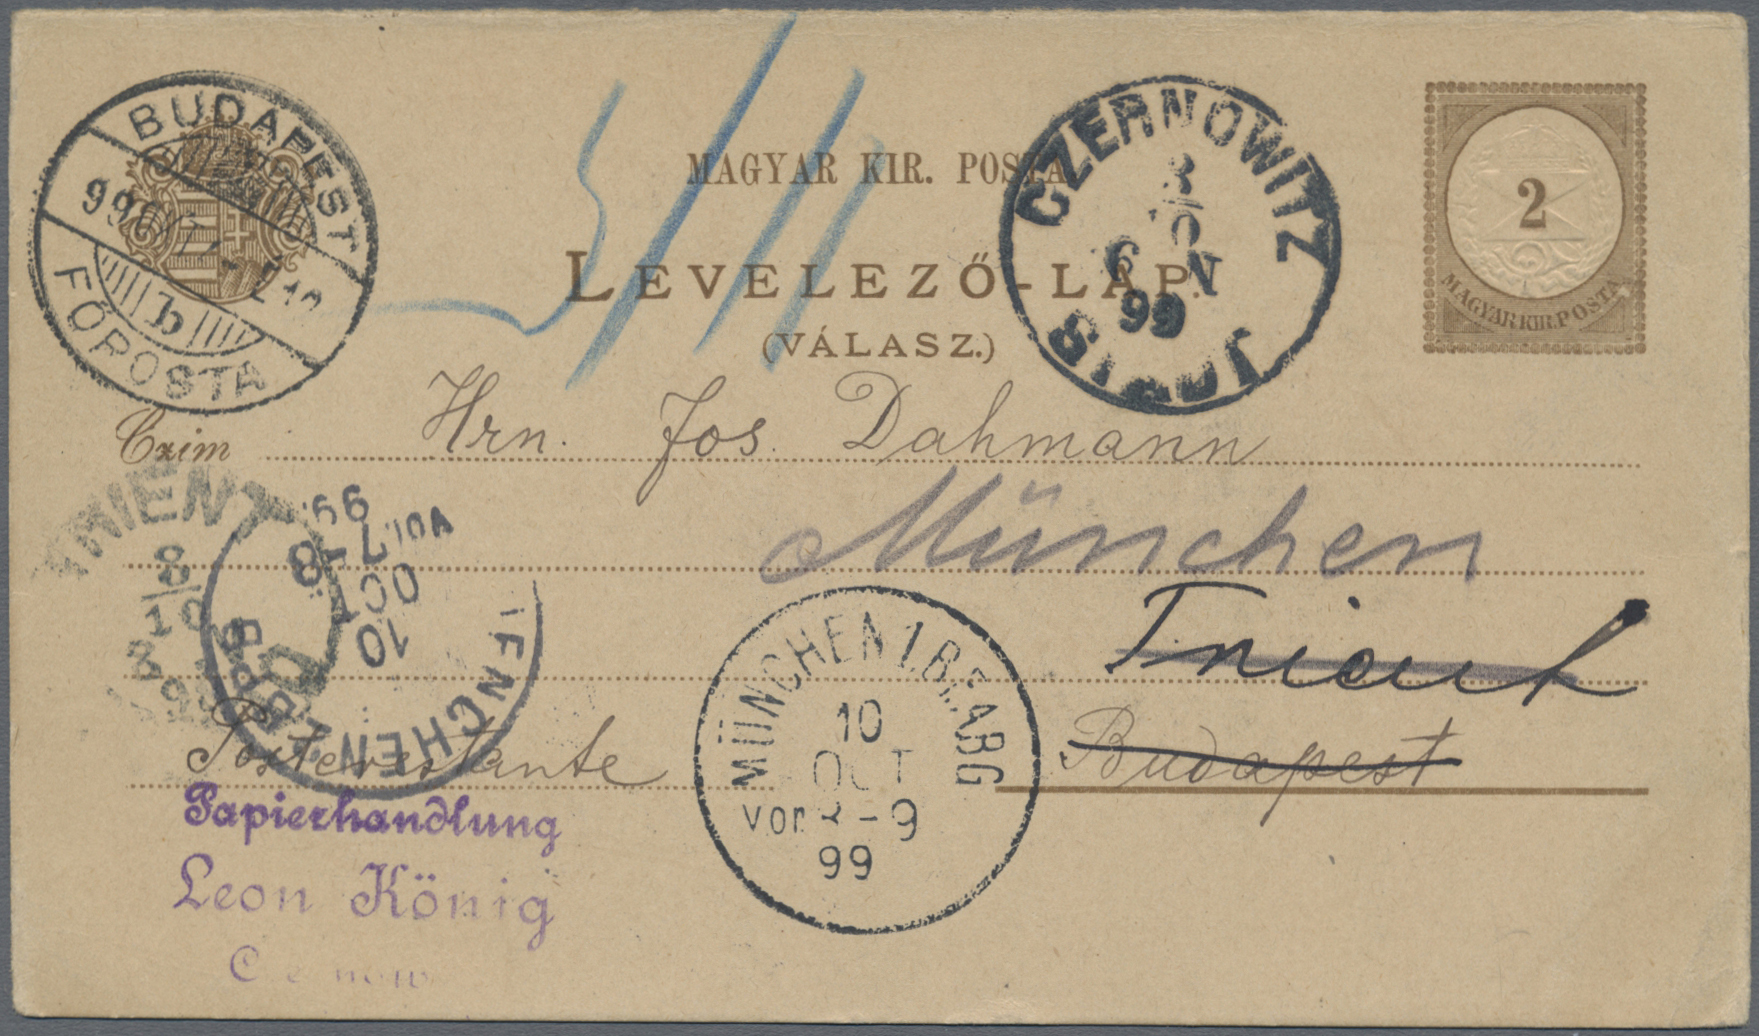 MAGYAR KIR. POSTA.
LEVELEZŐ-LAP.
(VÁLASZ.)
2
MAGYAR KIR. POSTA
BUDAPEST
FŐPOSTA
b
CZERNOWITZ
3/10
6 N
99
STADT
Czim
Hrn. Jos. Dahmann
München
Trient
Budapest
Posterestante
TRIENT
8
10
99
MUENCHEN
10
OCT
7-8
VOR
99
MÜNCHEN 1. BR.F.ABG
10
OCT
Vor 8-9
99
Papierhandlung
Leon König